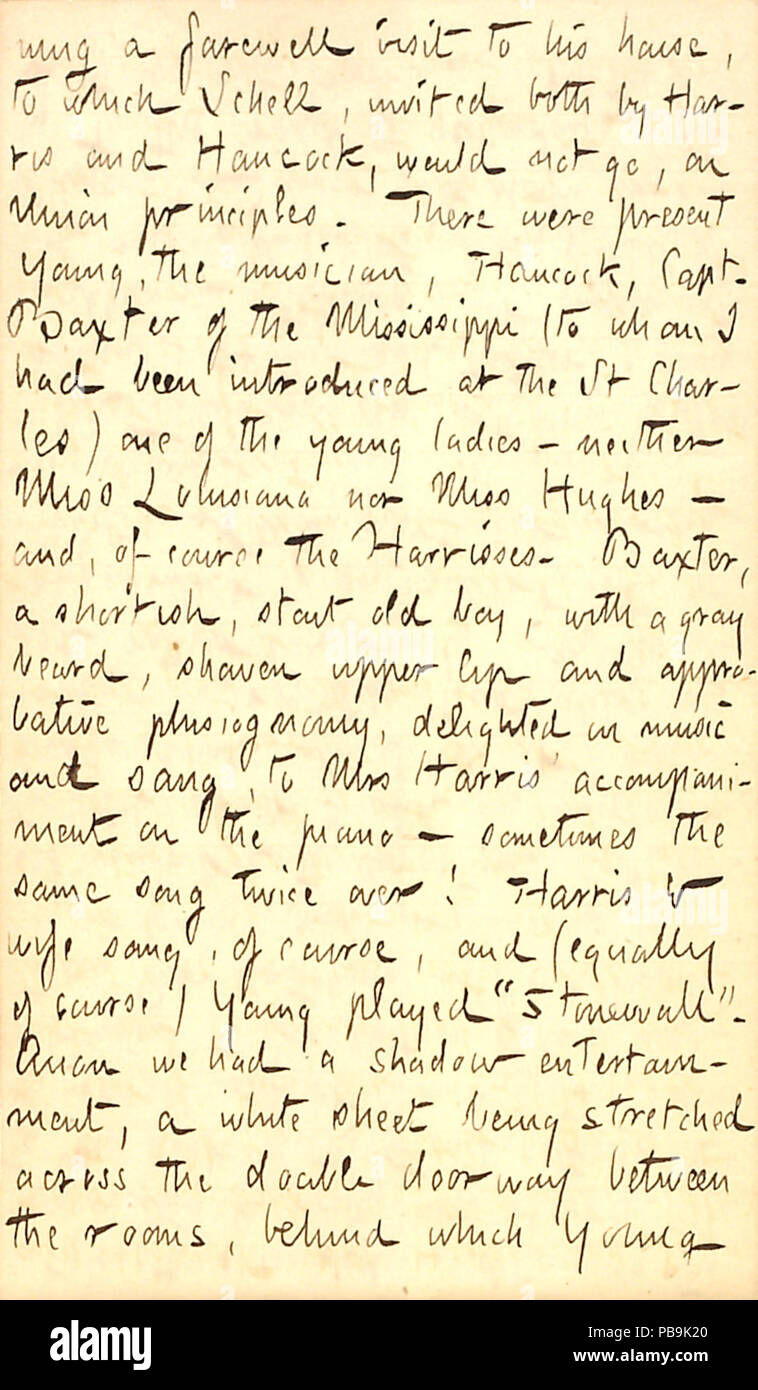 ning a farewell visit to his house,
to which Schell, invited both by Har-
ris and Hancock, would not go, on
Union principles. There were present
Young, the musician, Hancock, Capt.
Baxter of the Mississippi (to whom I
had been introduced at the St Char-
les) one of the young ladies — neither
Miss Louisiana nor Miss Hughes —
and, of course the Harrisses. Baxter,
a shortish, stout old boy, with a gray
beard, shaven upper lip and appro-
bative phisiognomy, delighted in music
and sang, to Mrs Harris' accompani-
ment on the piano — sometimes the
same song twice over! Harris &
wife sang, of course, and (equally
of course) Young played "Stonewall".
Anon we had a shadow entertain-
ment, a white sheet being stretched
across the double doorway between
the rooms, behind which Young
alamy
Image ID: PB9K20
www.alamy.com